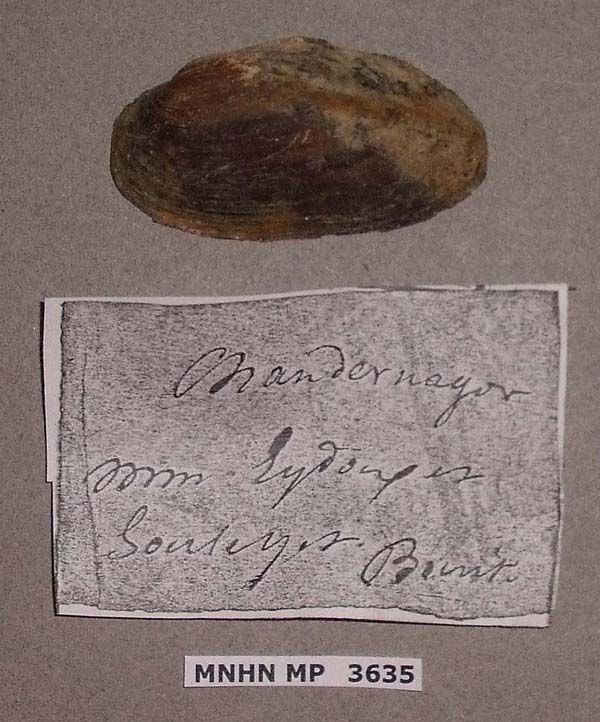 Chandernagor
mm Eydoux et
Souleyet. Bonit.
MNHN MP 3635